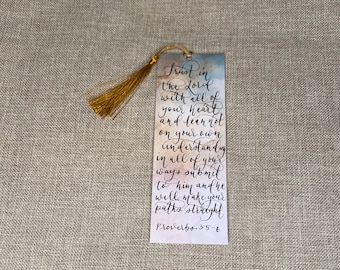 Trust in
the Lord
with all of
your heart
and lean not
on your own
understanding
in all of your
ways submit
to him and he
will make your
paths straight
Proverbs 3:5-6